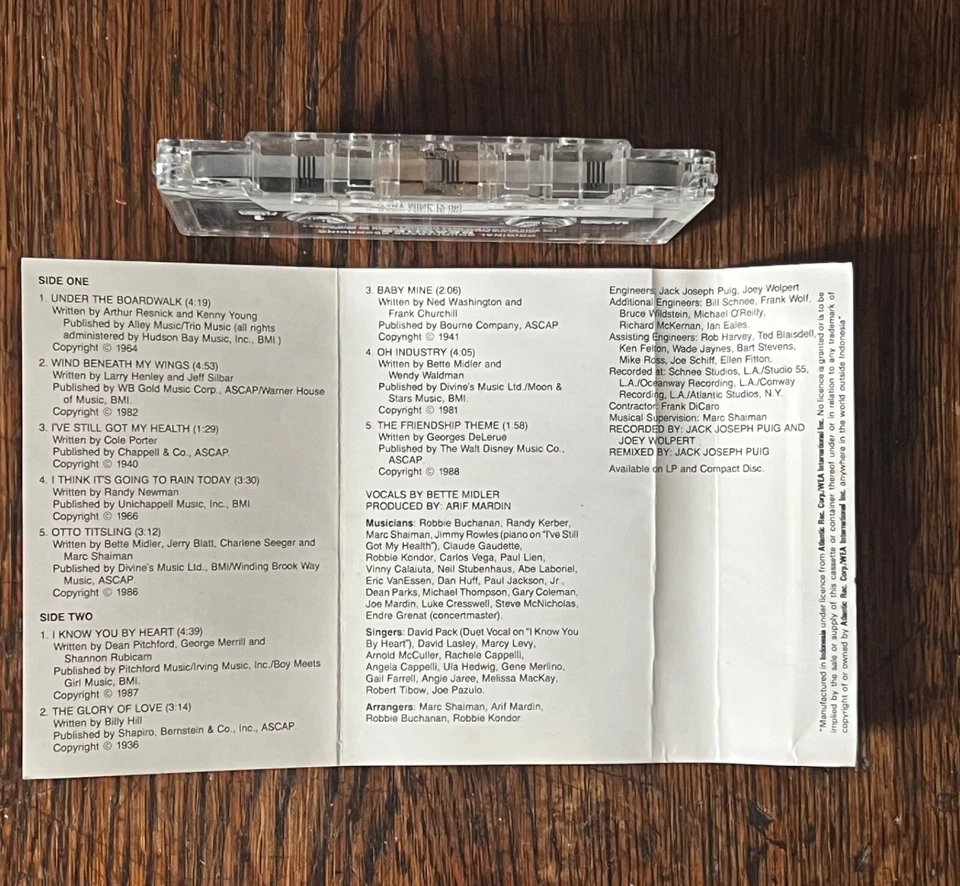 SIDE ONE
1. UNDER THE BOARDWALK (4:19)
Written by Arthur Resnick and Kenny Young
Published by Alley Music/Trio Music (all rights
administered by Hudson Bay Music, Inc., BMI.)
Copyright © 1964
2. WIND BENEATH MY WINGS (4:53)
Written by Larry Henley and Jeff Silbar
Published by WB Gold Music Corp., ASCAP/Warner House
of Music, BMI.
Copyright © 1982
3. I'VE STILL GOT MY HEALTH (1:29)
Written by Cole Porter
Published by Chappell & Co., ASCAP.
Copyright © 1940
4. I THINK IT'S GOING TO RAIN TODAY (3:30)
Written by Randy Newman
Published by Unichappell Music, Inc., BMI
Copyright © 1966
5. OTTO TITSLING (3:12)
Written by Bette Midler, Jerry Blatt, Charlene Seeger and
Marc Shaiman
Published by Divine's Music Ltd., BMI/Winding Brook Way
Music, ASCAP.
Copyright © 1986
SIDE TWO
1. I KNOW YOU BY HEART (4:39)
Written by Dean Pitchford, George Merrill and
Shannon Rubicam
Published by Pitchford Music/Irving Music, Inc./Boy Meets
Girl Music, BMI.
Copyright © 1987
2. THE GLORY OF LOVE (3:14)
Written by Billy Hill
Published by Shapiro, Bernstein & Co., Inc., ASCAP.
Copyright © 1936
3. BABY MINE (2:06)
Written by Ned Washington and
Frank Churchill
Published by Bourne Company, ASCAP.
Copyright © 1941
4. OH INDUSTRY (4:05)
Written by Bette Midler and
Wendy Waldman
Published by Divine's Music Ltd./Moon &
Stars Music, BMI.
Copyright © 1981
5. THE FRIENDSHIP THEME (1:58)
Written by Georges DeLerue
Published by The Walt Disney Music Co.,
ASCAP.
Copyright © 1988
VOCALS BY BETTE MIDLER
PRODUCED BY: ARIF MARDIN
Musicians: Robbie Buchanan, Randy Kerber,
Marc Shaiman, Jimmy Rowles (piano on "I've Still
Got My Health"), Claude Gaudette,
Robbie Kondor, Carlos Vega, Paul Lien,
Vinny Calaiuta, Neil Stubenhaus, Abe Laboriel,
Eric VanEssen, Dan Huff, Paul Jackson, Jr.,
Dean Parks, Michael Thompson, Gary Coleman,
Joe Mardin, Luke Cresswell, Steve McNicholas,
Endre Grenat (concertmaster).
Singers: David Pack (Duet Vocal on "I Know You
By Heart"), David Lasley, Marcy Levy,
Arnold McCuller, Rachele Cappelli,
Angela Cappelli, Ula Hedwig, Gene Merlino,
Gail Farrell, Angie Jaree, Melissa MacKay,
Robert Tibow, Joe Pazulo.
Arrangers: Marc Shaiman, Arif Mardin,
Robbie Buchanan, Robbie Kondor
Engineers: Jack Joseph Puig, Joey Wolpert
Additional Engineers: Bill Schnee, Frank Wolf,
Bruce Wildstein, Michael O'Reilly,
Richard McKernan, Ian Eales.
Assisting Engineers: Rob Harvey, Ted Blaisdell,
Ken Felton, Wade Jaynes, Bart Stevens,
Mike Ross, Joe Schiff, Ellen Fitton.
Recorded at: Schnee Studios, L.A./Studio 55,
L.A./Oceanway Recording, L.A./Conway
Recording, L.A./Atlantic Studios, N.Y.
Contractor: Frank DiCaro
Musical Supervision: Marc Shaiman
RECORDED BY: JACK JOSEPH PUIG AND
JOEY WOLPERT
REMIXED BY: JACK JOSEPH PUIG
Available on LP and Compact Disc.
"Manufactured in Indonesia under licence from Atlantic Rec. Corp./WEA International Inc. No licence is granted or is to be
implied by the sale or supply of this cassette or container thereof under or in relation to any trademark of
copyright of or owned by Atlantic Rec. Corp./WEA International Inc. anywhere in the world outside Indonesia"